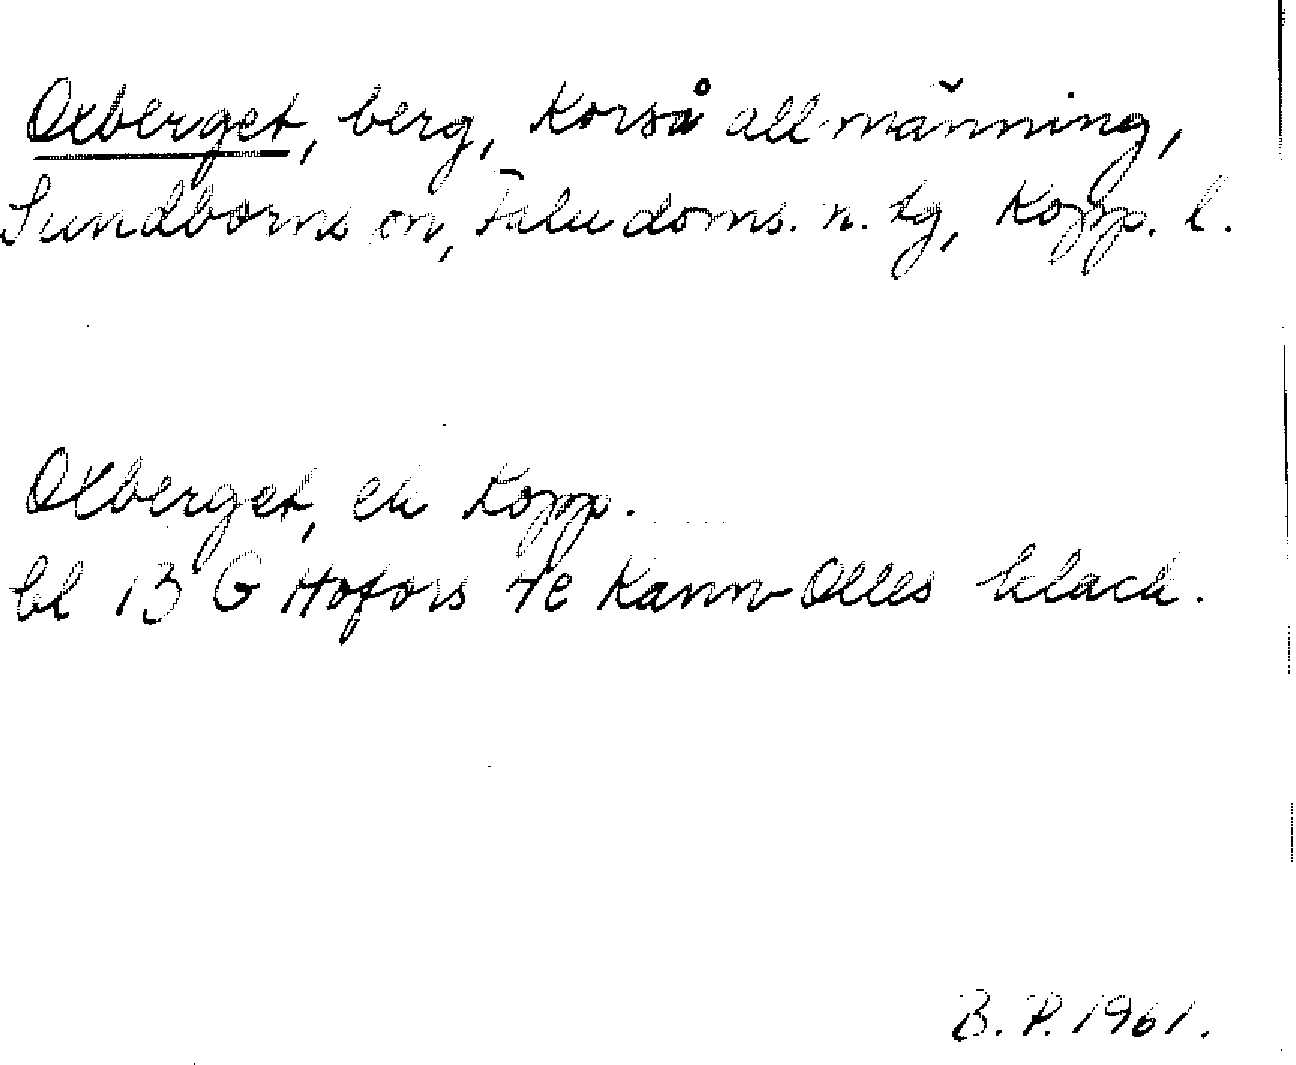 Oxberget, berg, Korså allmänning,
Sundborns sn, Falu doms. n. tg, Kopp. l.
Oxberget, ek Kopp.
bl 13 G Hofors 7e Kann-Olles klack.
B. P. 1961.